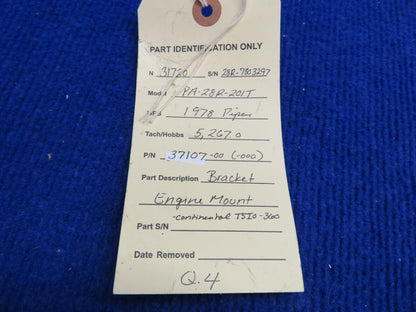 PART IDENTIFICATION ONLY
N 31720 S/N 28R-7803297
Model PA-28R-201T
1978 Piper
Tach/Hobbs 5,267.0
P/N 37107-00 (-000)
Part Description Bracket
Engine Mount
-Continental TSIO-360
Part S/N
Date Removed
Q.4